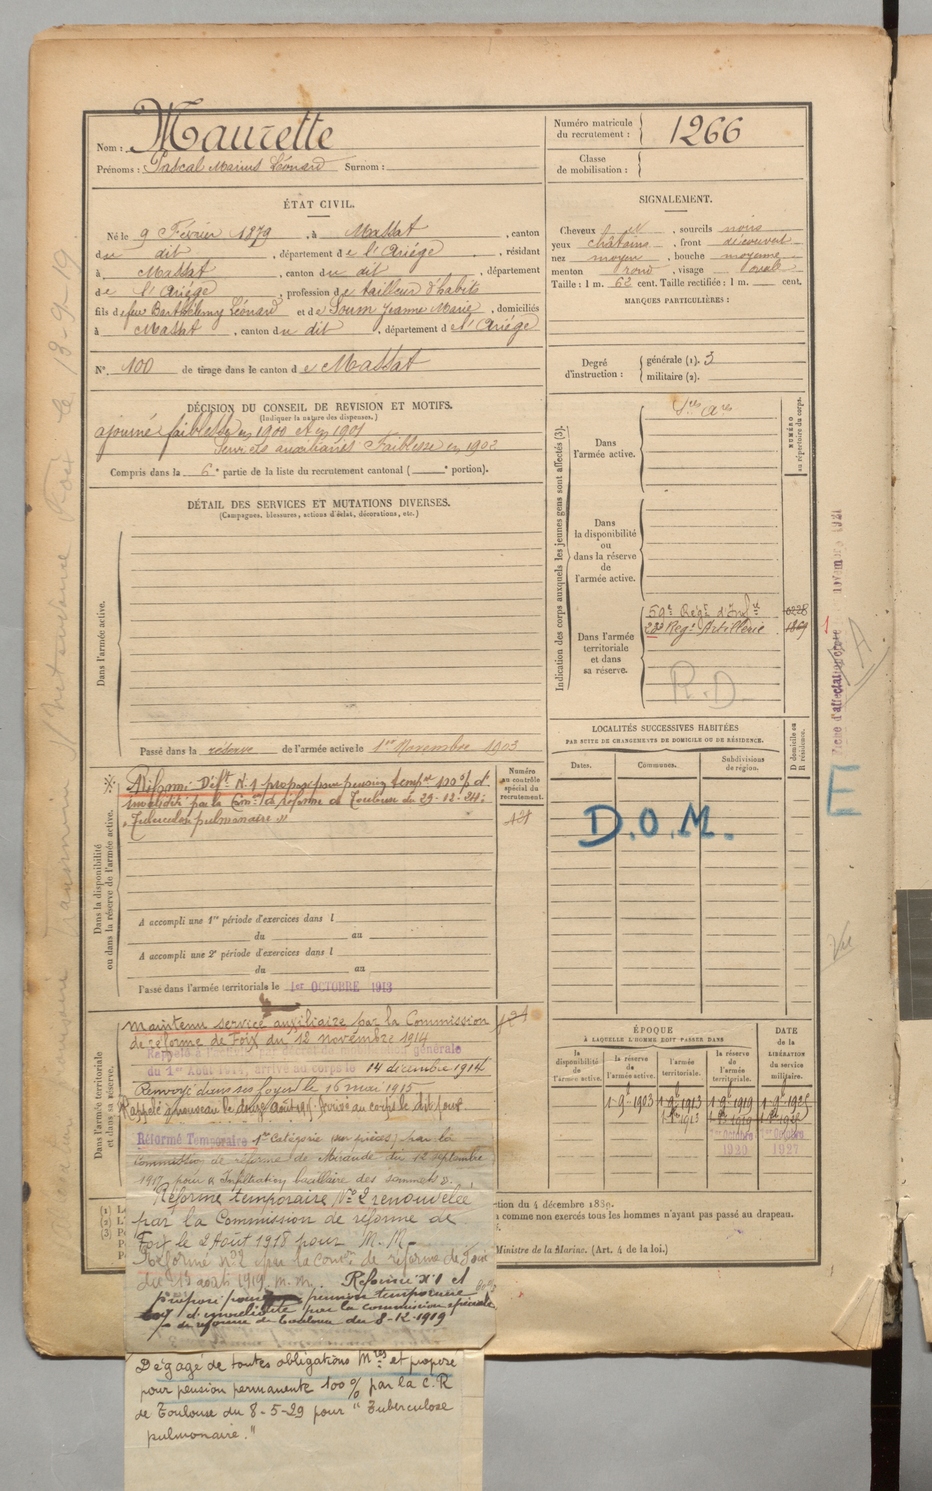 Nom : Maurette
Prénoms : Pascal Marius Léonard Surnom :
Numéro matricule du recrutement : 1266
Classe de mobilisation :
ÉTAT CIVIL.
Né le 9 Février 1879, à Massat, canton
du dit, département de l'Ariège, résidant
à Massat, canton du dit, département
de l'Ariège, profession de tailleur d'habits
fils de feu Barthélemy Léonard et de Soum Jeanne Marie, domiciliés
à Massat, canton du dit, département de l'Ariège
N°. 100 de tirage dans le canton de Massat
SIGNALEMENT.
Cheveux, sourcils noirs
yeux châtains, front découvert
nez moyen, bouche moyenne
menton rond, visage oval
Taille : 1 m. 62 cent. Taille rectifiée : 1 m. cent.
MARQUES PARTICULIÈRES :
Degré d'instruction : générale (1). 3
militaire (2).
DÉCISION DU CONSEIL DE REVISION ET MOTIFS.
(Indiquer la nature des dispenses.)
ajourné faiblesse en 1900 et en 1901
Services auxiliaires Faiblesse en 1902
Compris dans la 6e partie de la liste du recrutement cantonal ( e portion).
DÉTAIL DES SERVICES ET MUTATIONS DIVERSES.
(Campagnes, blessures, actions d'éclat, décorations, etc.)
Dans l'armée active.
Passé dans la réserve de l'armée active le 1er Novembre 1903
Indication des corps auxquels les jeunes gens sont affectés (3).
NUMÉRO au répertoire du corps.
Dans l'armée active.
Dans la disponibilité ou dans la réserve de l'armée active.
Dans l'armée territoriale et dans sa réserve.
59e Régt d'Infie
Regt Artillerie 1869
R.D
Dans la disponibilité ou dans la réserve de l'armée active.
Numéro au contrôle spécial du recrutement.
Réformé Déft N.1 proposé pour pension temp
invalidité par la de réforme de Toulouse du 29-12-24 :
Tuberculose pulmonaire "
A accompli une 1re période d'exercices dans l
du au
A accompli une 2e période d'exercices dans l
du au
Passé dans l'armée territoriale le 1er OCTOBRE 1913
LOCALITÉS SUCCESSIVES HABITÉES
PAR SUITE DE CHANGEMENTS DE DOMICILE OU DE RÉSIDENCE.
Dates. Communes. Subdivisions de région. D domicile ou R résidence.
D.O.M.
Dans l'armée territoriale et dans sa réserve.
Maintenu service auxiliaire par la Commission
de réforme de Foix du 12 novembre 1914
Rappelé à générale
du 1er Août 1914, arrivé au corps le 14 décembre 1914
Renvoyé dans ses foyers le 16 mai 1915
Réformé Temporaire 1re Catégorie par la
commission de réforme de Mirande du 12 septembre
1917 pour « Infiltration bacillaire des sommets ».
Réforme temporaire No 2 renouvelée
par la Commission de réforme de
Foix le 2 Août 1918 pour M. M.
Réformé no 2 par la comon de réforme de Foix
du 13 août 1919. M.M. Réformé n° 1 et
proposé pour pension temporaire
d'invalidité par la commission spéciale
de réforme de Toulouse du 8-12-1919
Dégagé de toutes obligations Mres et proposé
pour pension permanente 100% par la C.R
de Toulouse du 8-5-29 pour "Tuberculose
pulmonaire."
ÉPOQUE
À LAQUELLE L'HOMME DOIT PASSER DANS
DATE de la LIBÉRATION du service militaire.
la disponibilité de l'armée active. la réserve de l'armée active. l'armée territoriale. la réserve de l'armée territoriale.
1-9-1903 1-9-1913 1-9-1919
1920 1927
du 4 décembre 1889.
comme non exercés tous les hommes n'ayant pas passé au drapeau.
Ministre de la Marine. (Art. 4 de la loi.)
Fiche d'affectation novembre 1921
E
Vu